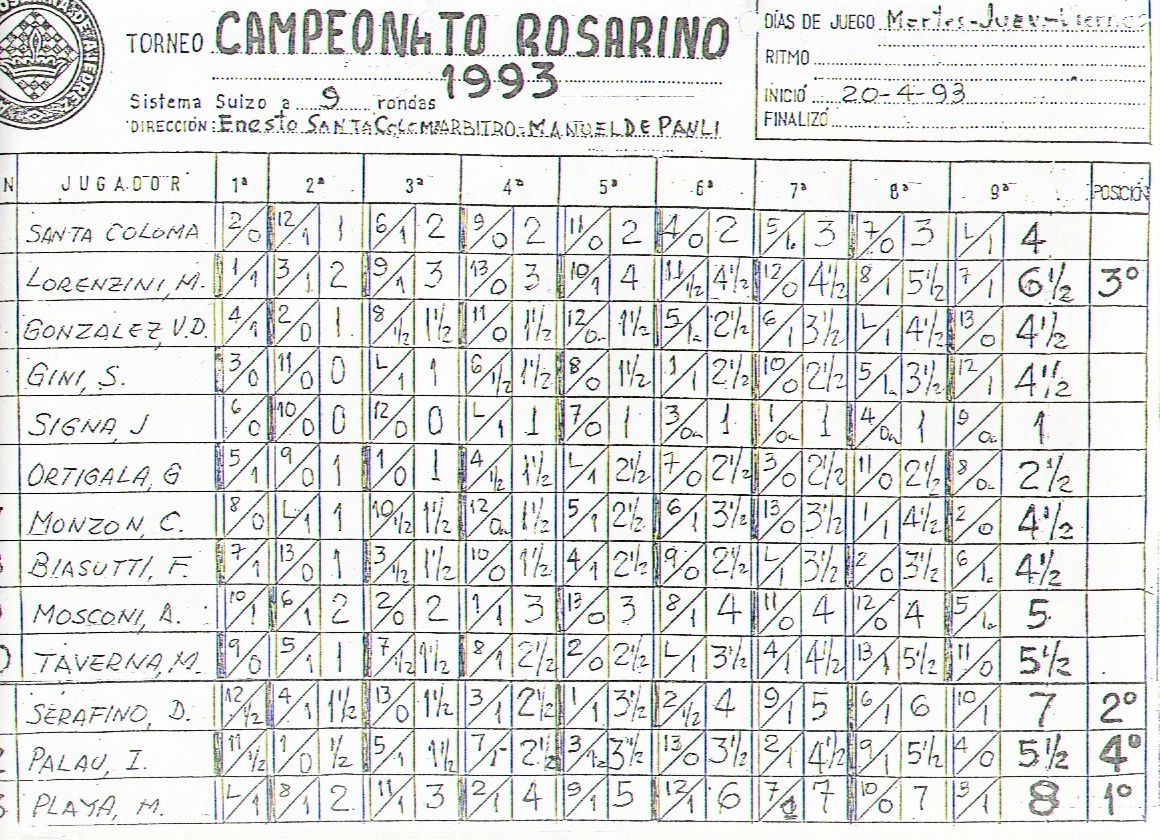 TORNEO CAMPEONATO ROSARINO
1993
Sistema Suizo a 9 rondas
DIRECCIÓN: Enesto SANTA COLOMA ARBITRO-MANUEL DE PAULI
DÍAS DE JUEGO Martes-Juev-Viernes
RITMO
INICIÓ 20-4-93
FINALIZÓ
N JUGADOR 1ª 2ª 3ª 4ª 5ª 6ª 7ª 8ª 9ª POSICIÓN
SANTA COLOMA 2/0 12/1 1 6/1 2 9/0 2 11/0 2 4/0 2 5/1a 3 7/0 3 L/1 4
LORENZINI, M. 1/1 3/1 2 9/1 3 13/0 3 10/1 4 11/½ 4½ 12/0 4½ 8/1 5½ 7/1 6½ 3º
GONZALEZ, V.D. 4/1 2/0 1 8/½ 1½ 11/0 1½ 12/0a 1½ 5/1a 2½ 6/1 3½ L/1 4½ 13/0 4½
GINI, S. 3/0 11/0 0 L/1 1 6/½ 1½ 8/0 1½ 1/1 2½ 10/0 2½ 5/1a 3½ 12/1 4½
SIGNA, J 6/0 10/0 0 12/0 0 L/1 1 7/0 1 3/0a 1 1/0a 1 4/0a 1 9/0a 1
ORTIGALA, G 5/1 9/0 1 1/0 1 4/½ 1½ L/1 2½ 7/0 2½ 3/0 2½ 11/0 2½ 8/0a 2½
MONZON, C. 8/0 L/1 1 10/½ 1½ 12/0a 1½ 5/1 2½ 6/1 3½ 13/0 3½ 1/1 4½ 2/0 4½
BIASUTTI, F. 7/1 13/0 1 3/½ 1½ 10/0 1½ 4/1 2½ 9/0 2½ L/1 3½ 2/0 3½ 6/1a 4½
MOSCONI, A. 10/1 6/1 2 2/0 2 1/1 3 13/0 3 8/1 4 11/0 4 12/0 4 5/1a 5
TAVERNA, M. 9/0 5/1 1 7/½ 1½ 8/1 2½ 2/0 2½ L/1 3½ 4/1 4½ 13/1 5½ 11/0 5½
SERAFINO, D. 12/½ 4/1 1½ 13/0 1½ 3/1 2½ 1/1 3½ 2/½ 4 9/1 5 6/1 6 10/1 7 2º
PALAU, I. 11/½ 1/0 ½ 5/1 1½ 7/1 2½ 3/1a 3½ 13/0 3½ 2/1 4½ 9/1 5½ 4/0 5½ 4º
PLAYA, M. L/1 8/1 2 11/1 3 2/1 4 9/1 5 12/1 6 7/1 7 10/0 7 3/1 8 1º